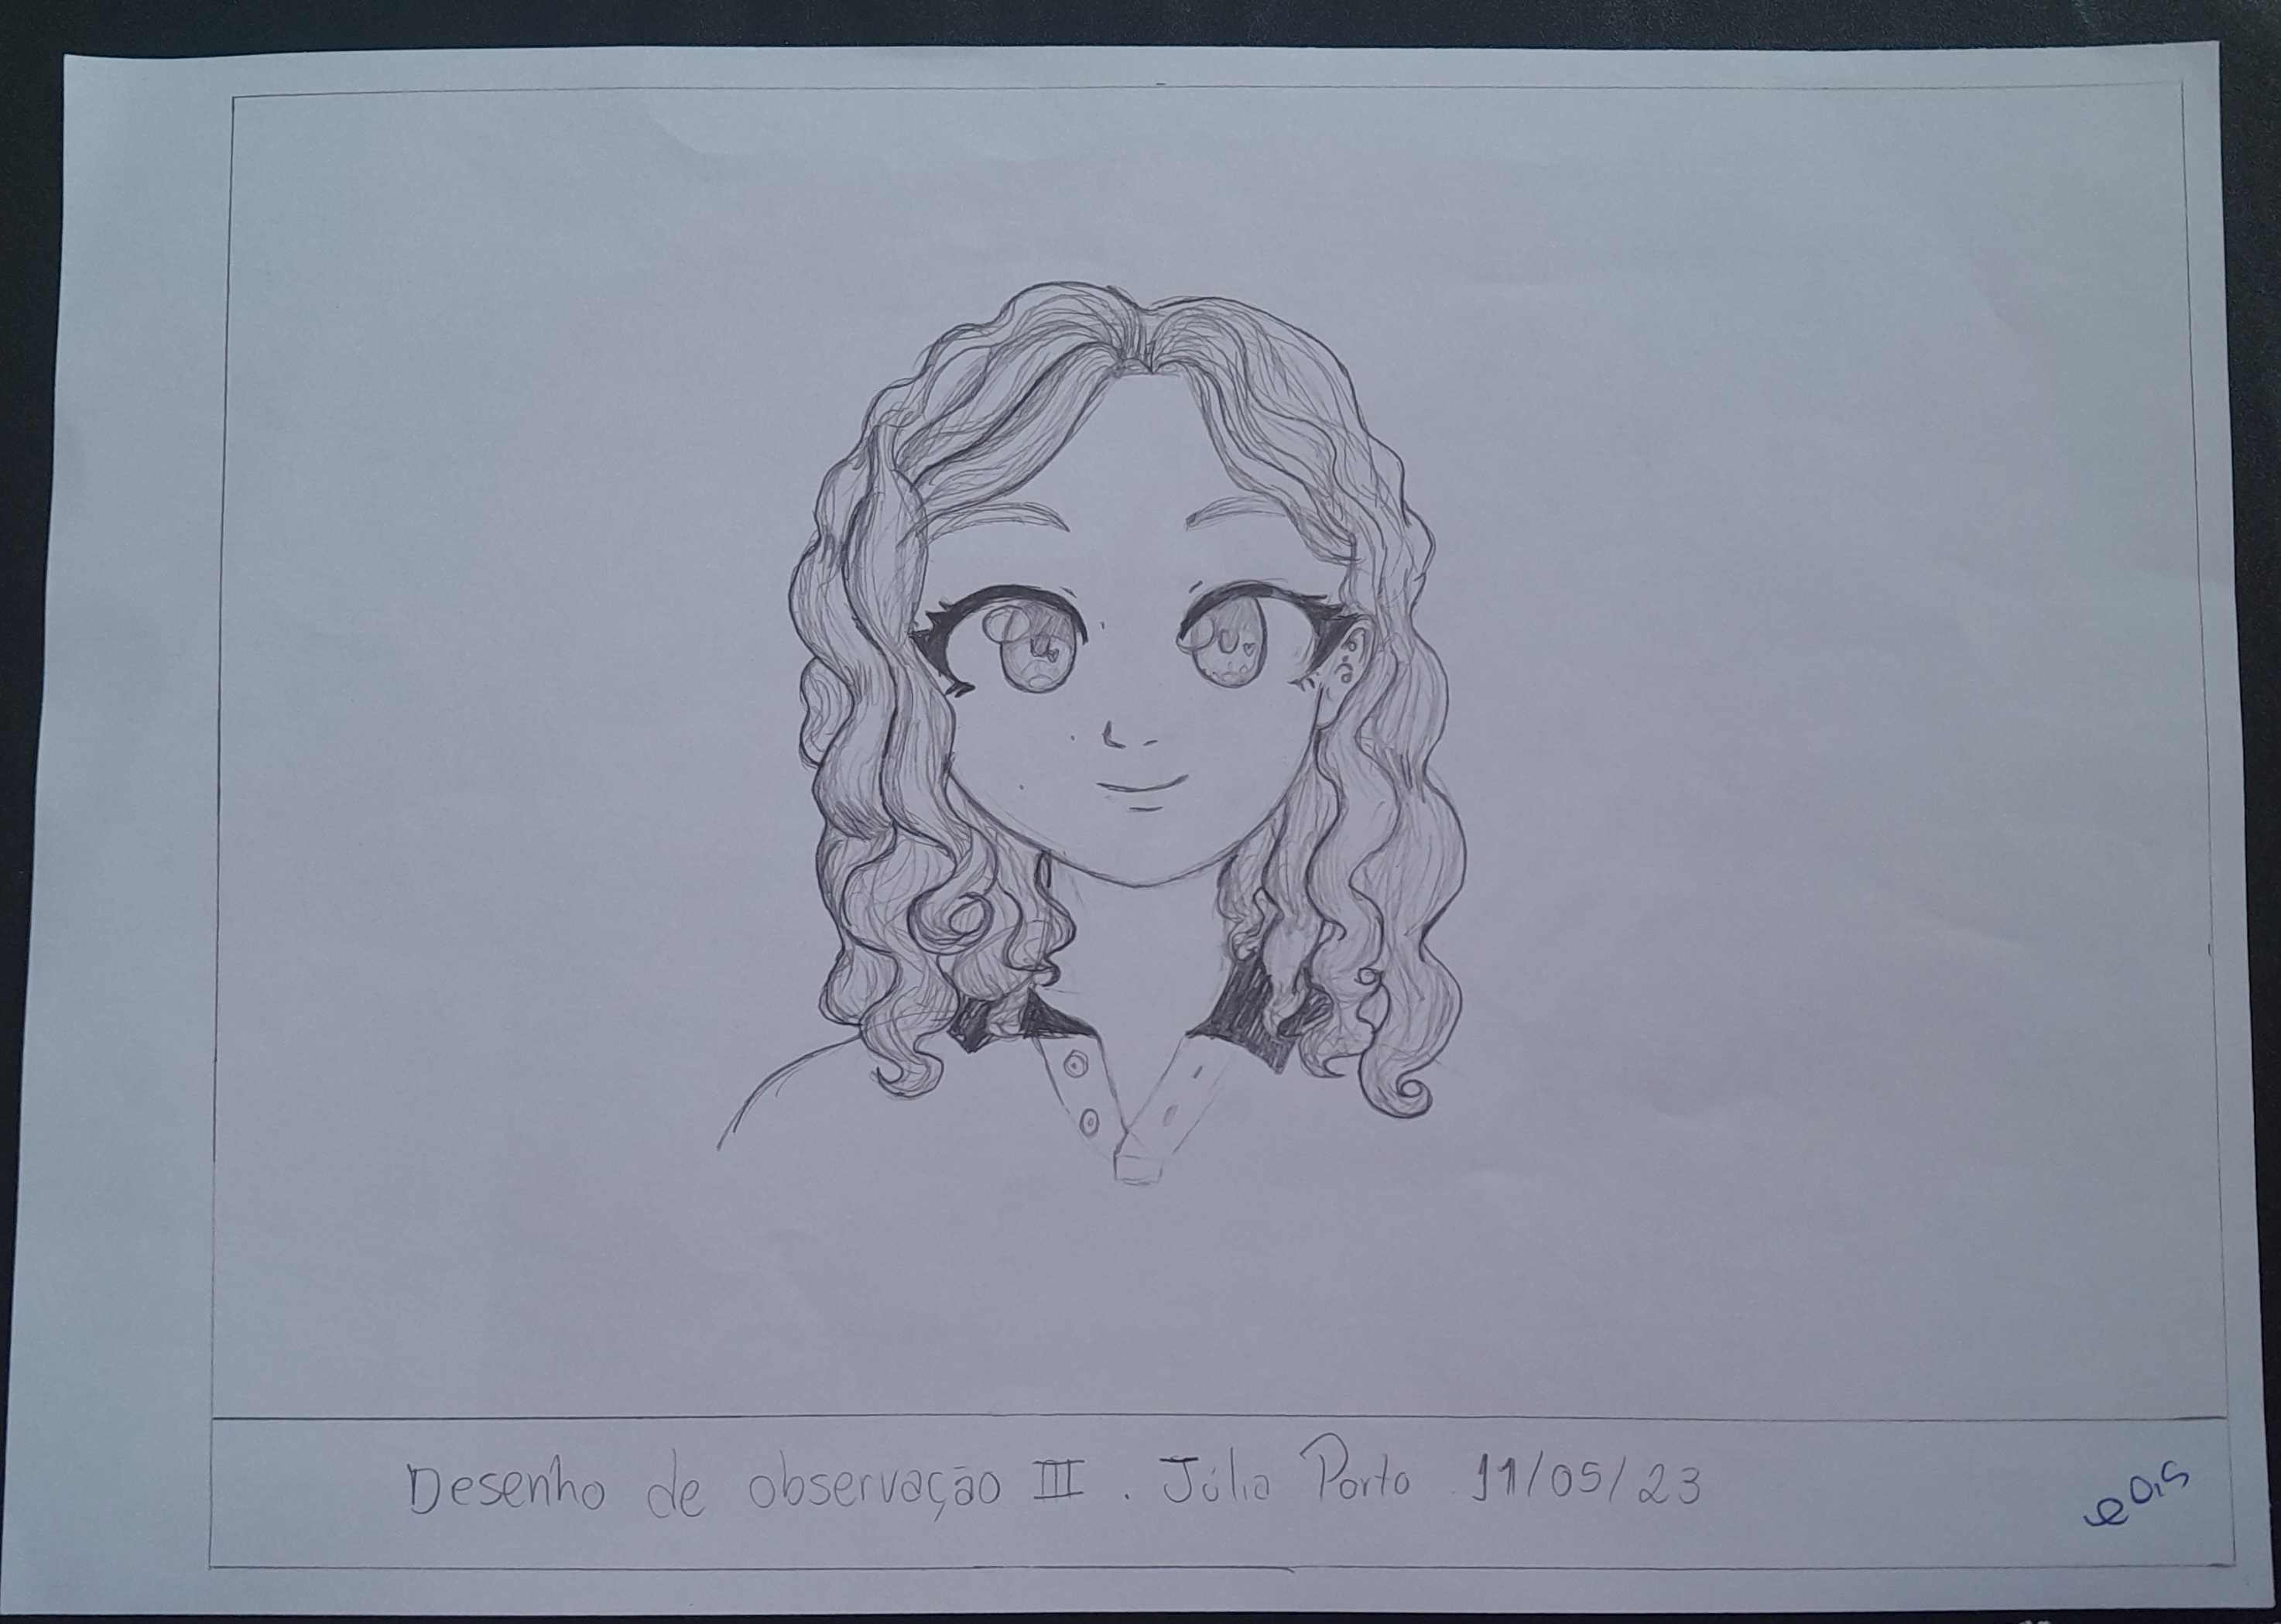 Desenho de observação III . Júlia Porto 11/05/23
0,5